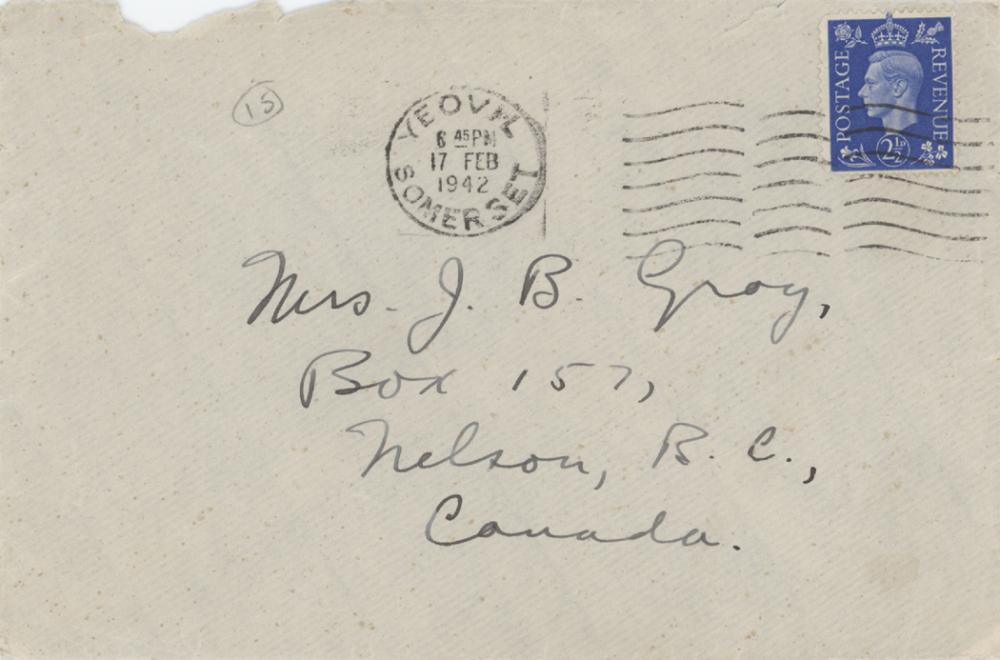 15
YEOVIL
6 45 PM
17 FEB
1942
SOMERSET
POSTAGE
REVENUE
2½D
Mrs. J. B. Gray,
Box 157,
Nelson, B. C.,
Canada.